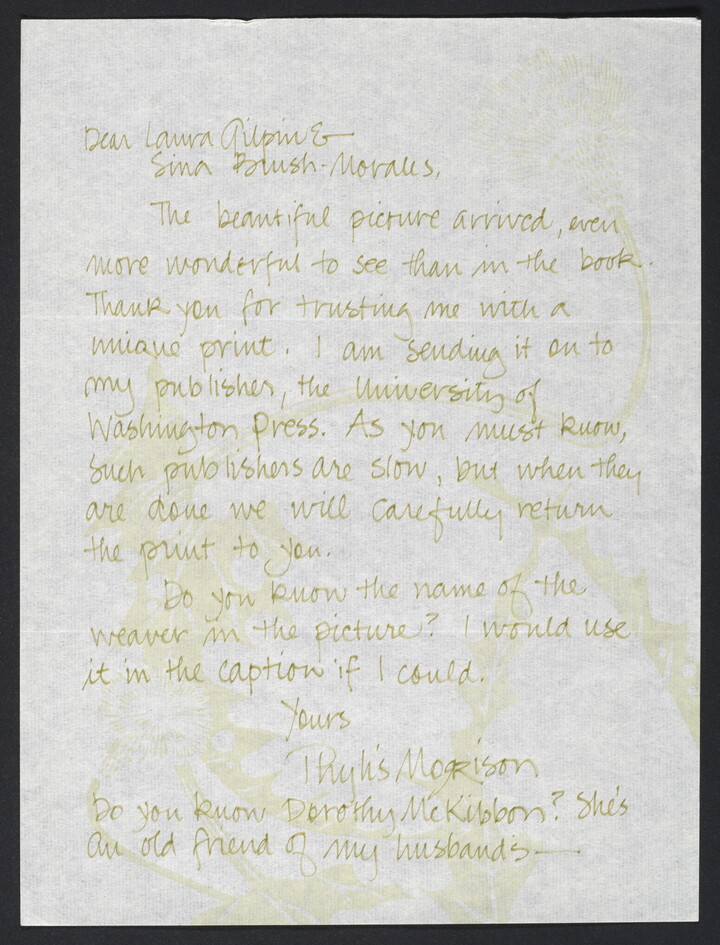 Dear Laura Gilpin &
Sina Brush-Morales,
The beautiful picture arrived, even
more wonderful to see than in the book.
Thank you for trusting me with a
unique print. I am sending it on to
my publisher, the University of
Washington Press. As you must know,
such publishers are slow, but when they
are done we will carefully return
the print to you.
Do you know the name of the
weaver in the picture? I would use
it in the caption if I could.
Yours
Phylis Morrison
Do you know Dorothy McKibbon? She's
an old friend of my husband's—